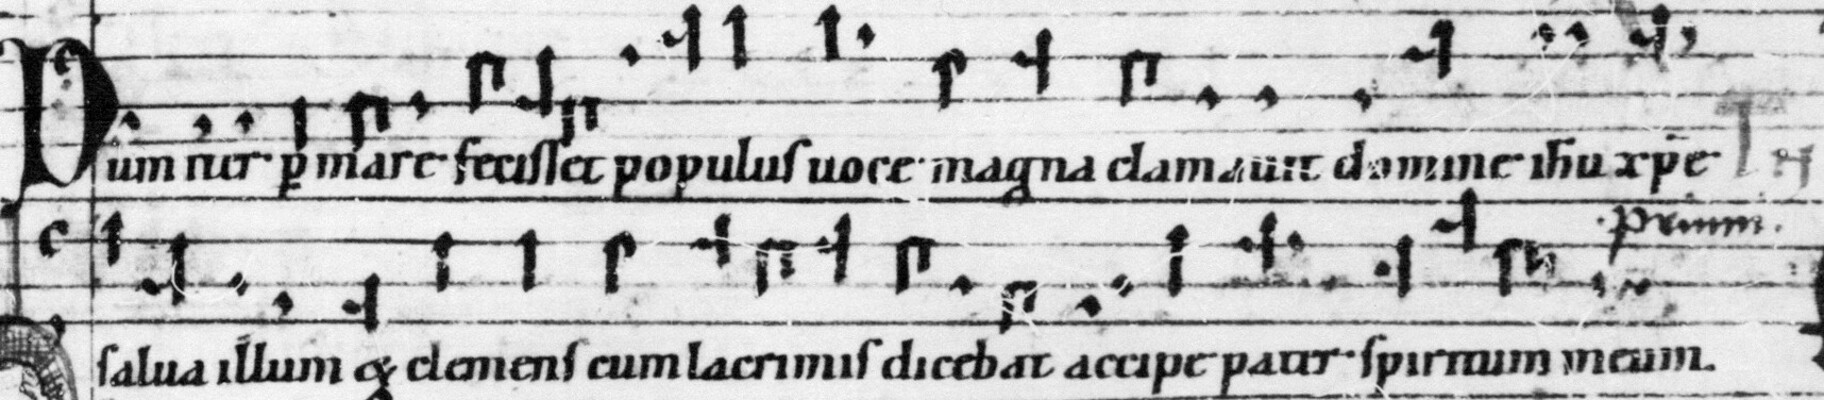 Dum iter p mare fecisset populus uoce magna clamauit domine ihu xpe
primum.
salua illum & clemens cum lacrimis dicebat accipe pater spiritum meum.